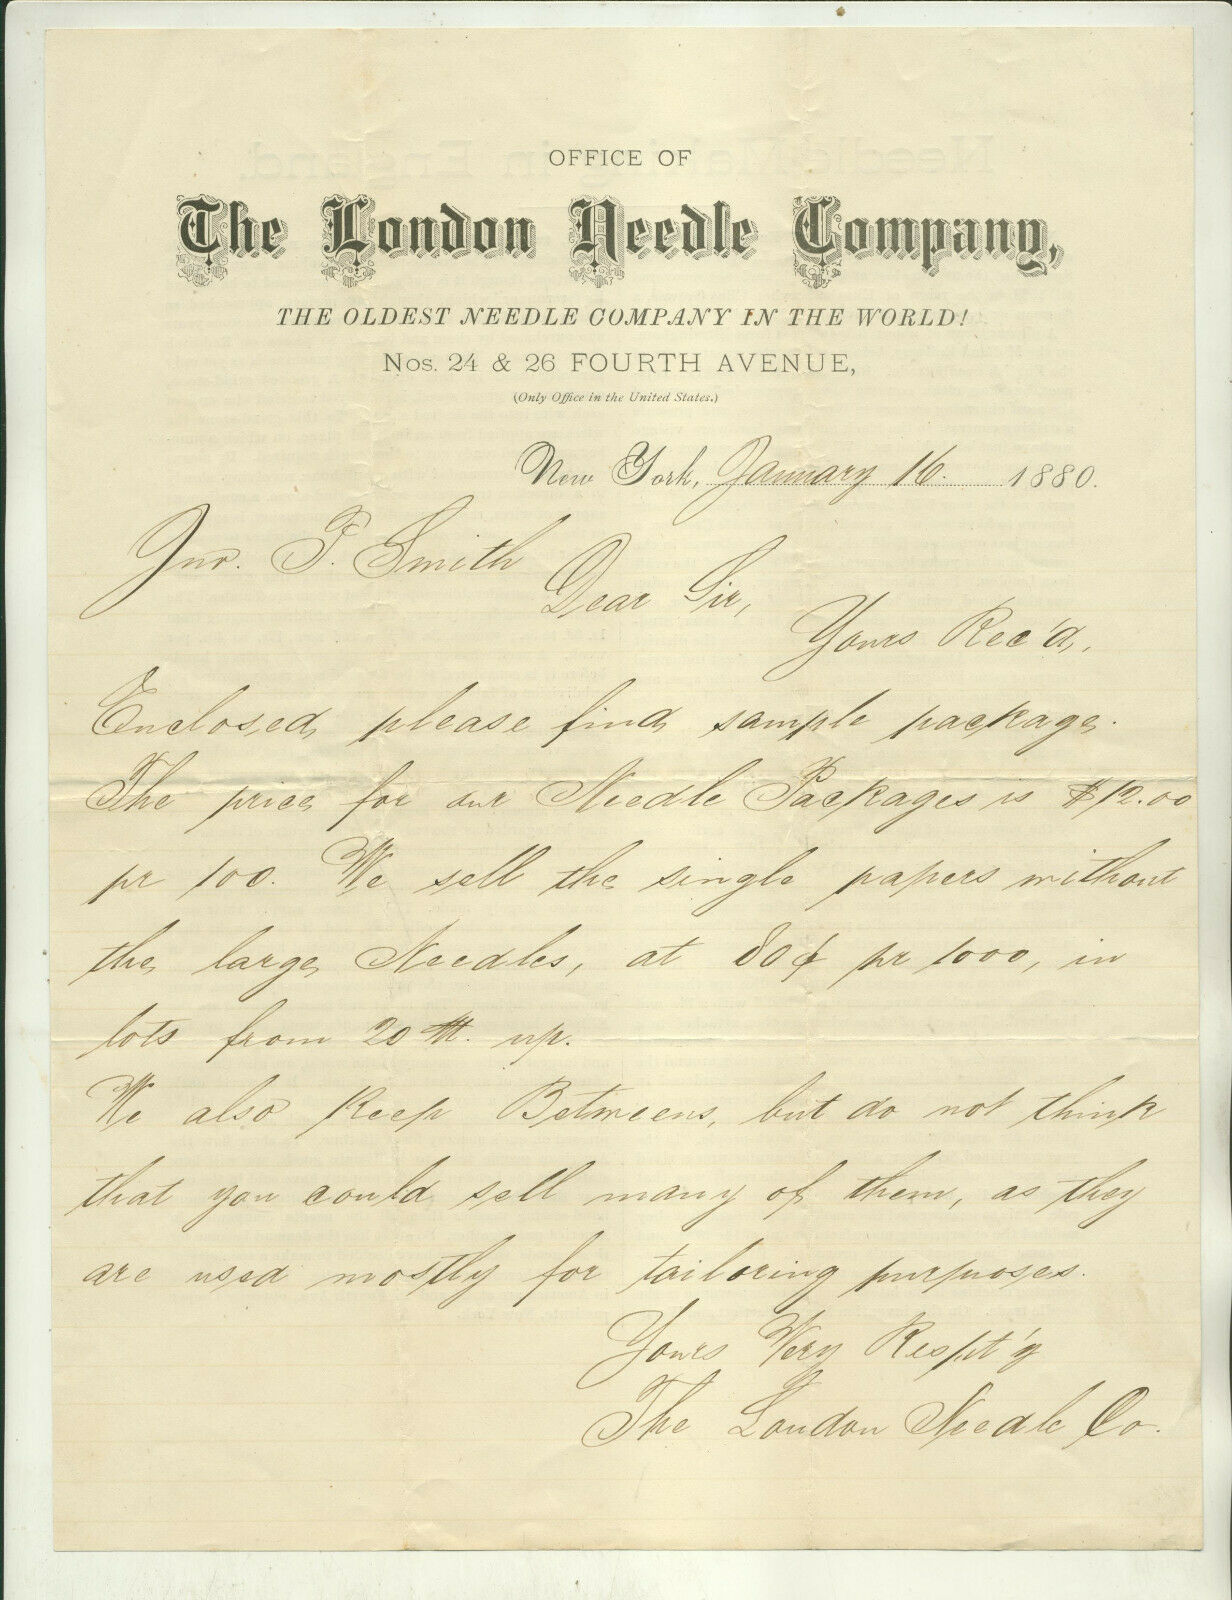 OFFICE OF
The London Needle Company,
THE OLDEST NEEDLE COMPANY IN THE WORLD!
Nos. 24 & 26 FOURTH AVENUE,
(Only Office in the United States.)
New York, January 16. 1880.
Jno. F. Smith
Dear Sir,
Yours Rec'd,
Enclosed, please find sample package.
The price for our Needle Packages is $12.00
pr 100. We sell the single papers without
the large Needles, at 80¢ pr 1000, in
lots from 20 M. up.
We also keep Betweens, but do not think
that you could sell many of them, as they
are used mostly for tailoring purposes.
Yours Very Respt'y
The London Needle Co.